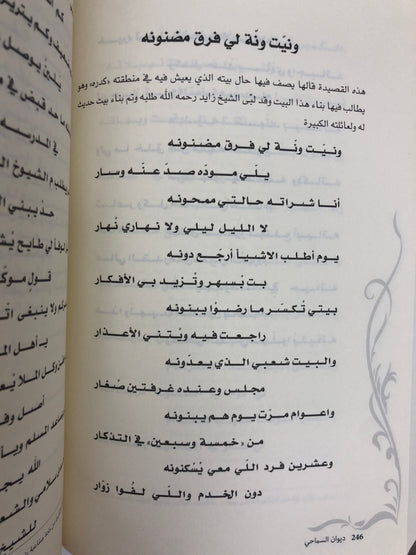 ونيّت ونّة لي فرق مضنونه
هذه القصيدة قالها يصف فيها حال بيته الذي يعيش فيه في منطقته «كدره» وهو
يطالب فيها بناء هذا البيت وقد لبّى الشيخ زايد رحمه الله طلبه وتم بناء بيت حديث
له ولعائلته الكبيرة
ونيّت ونّة لي فرق مضنونه
يلّي مودّه صدّ عنّه وسار
أنا شراته حالتي ممحونه
لا الليل ليلي ولا نهاري نهار
يوم أطلب الاشيا أرجّع دونه
بت بسهر وتزيد بي الأفكار
بيتي تْكسّر ما رضوا يبنونه
راجعت فيه ويّتني الأعذار
والبيت شعبي الذي يعدّونه
مجلس وعنده غرفتين صْغار
واعوام مرّت يوم هم يبنونه
من «خمسة وسبعين» في التذكار
وعشرين فرد اللي معي يسْكنونه
دون الخدم واللي لفوا زوّار
246 ديوان السماحي